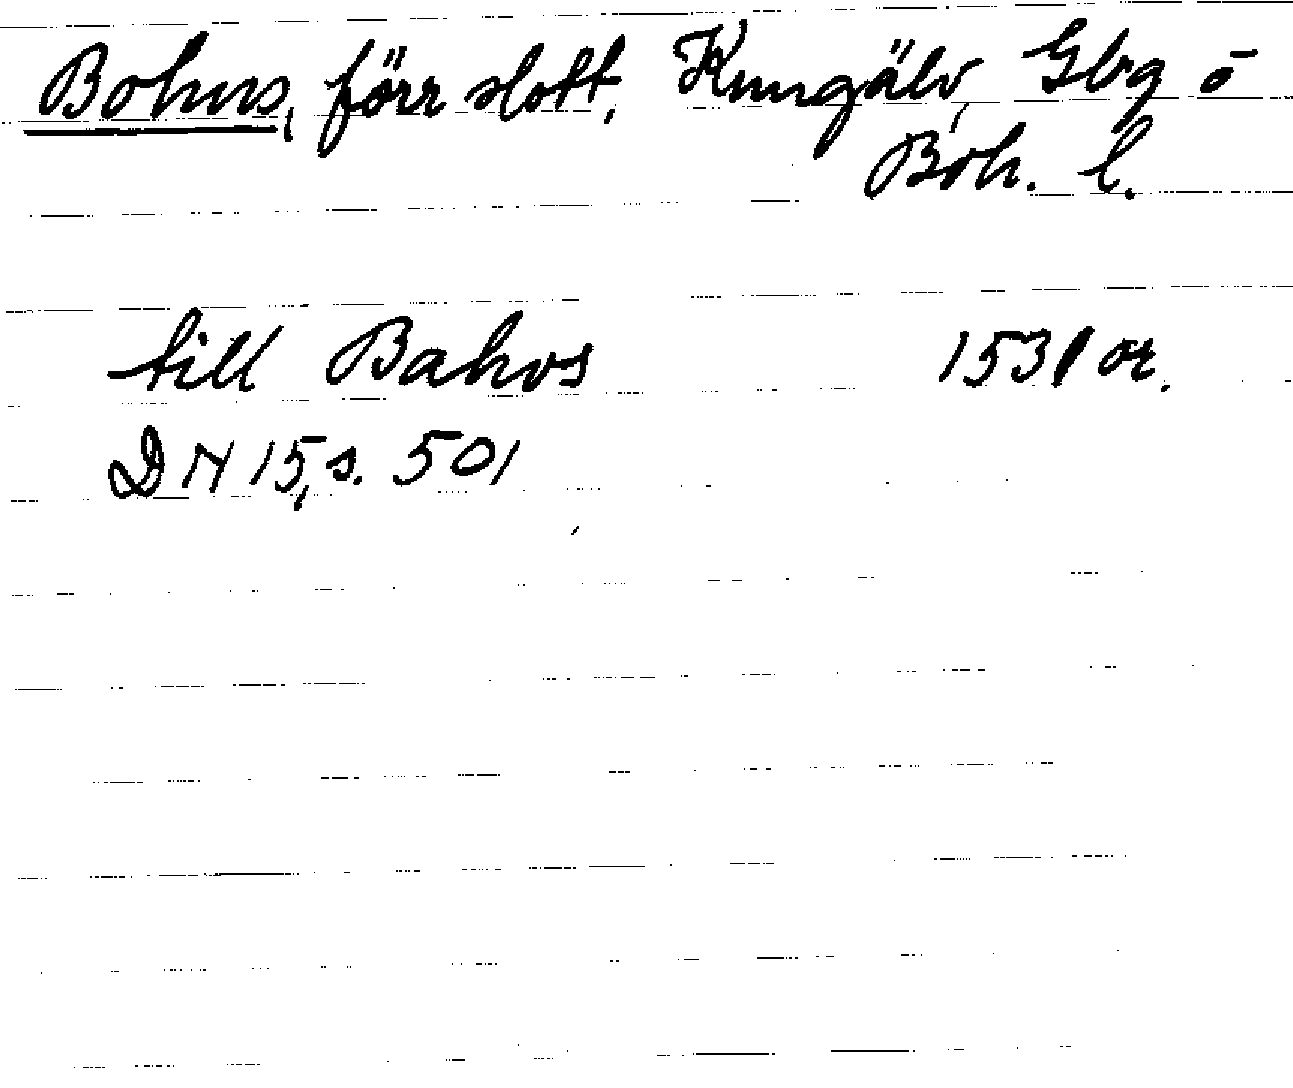 Bohus, förr slott, Kungälv, Gbg o
Boh. l.
till Bahus 1531 or.
DN 15, s. 501